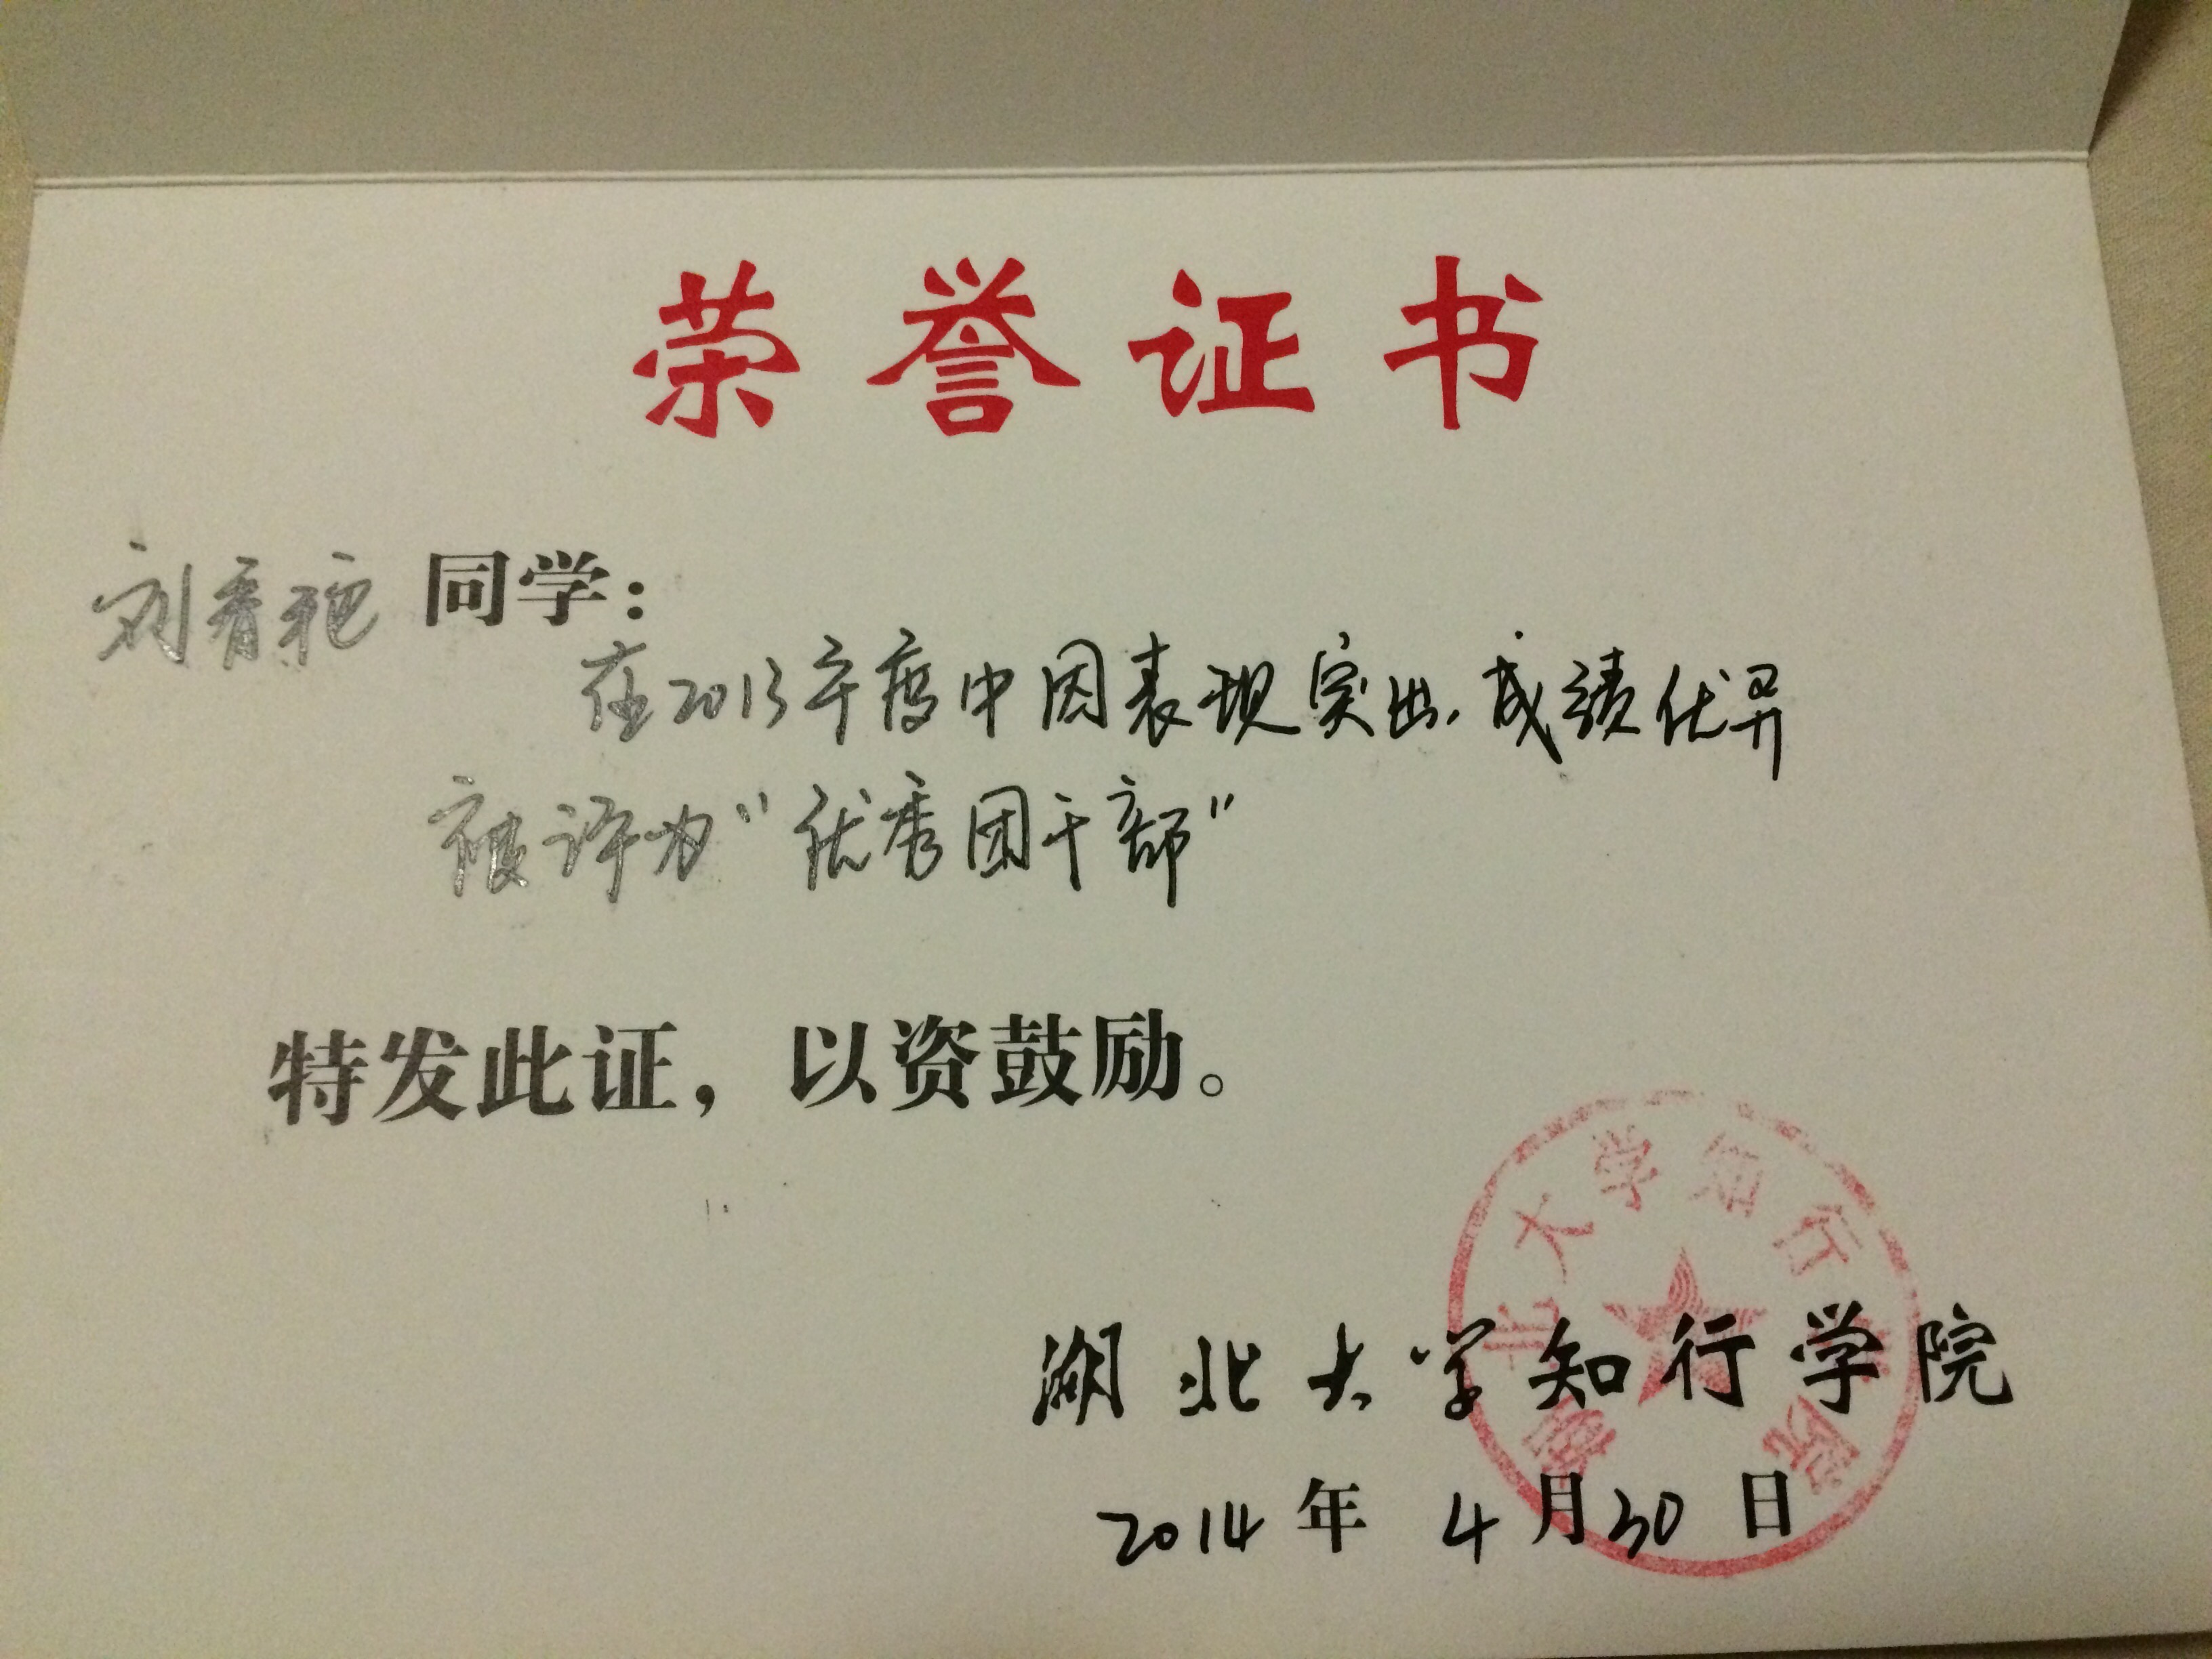 荣誉证书
刘香艳 同学：
在2013年度中因表现突出，成绩优异
被评为“优秀团干部”
特发此证，以资鼓励。
北大学知行学院
湖北大学知行学院
2014年4月30日